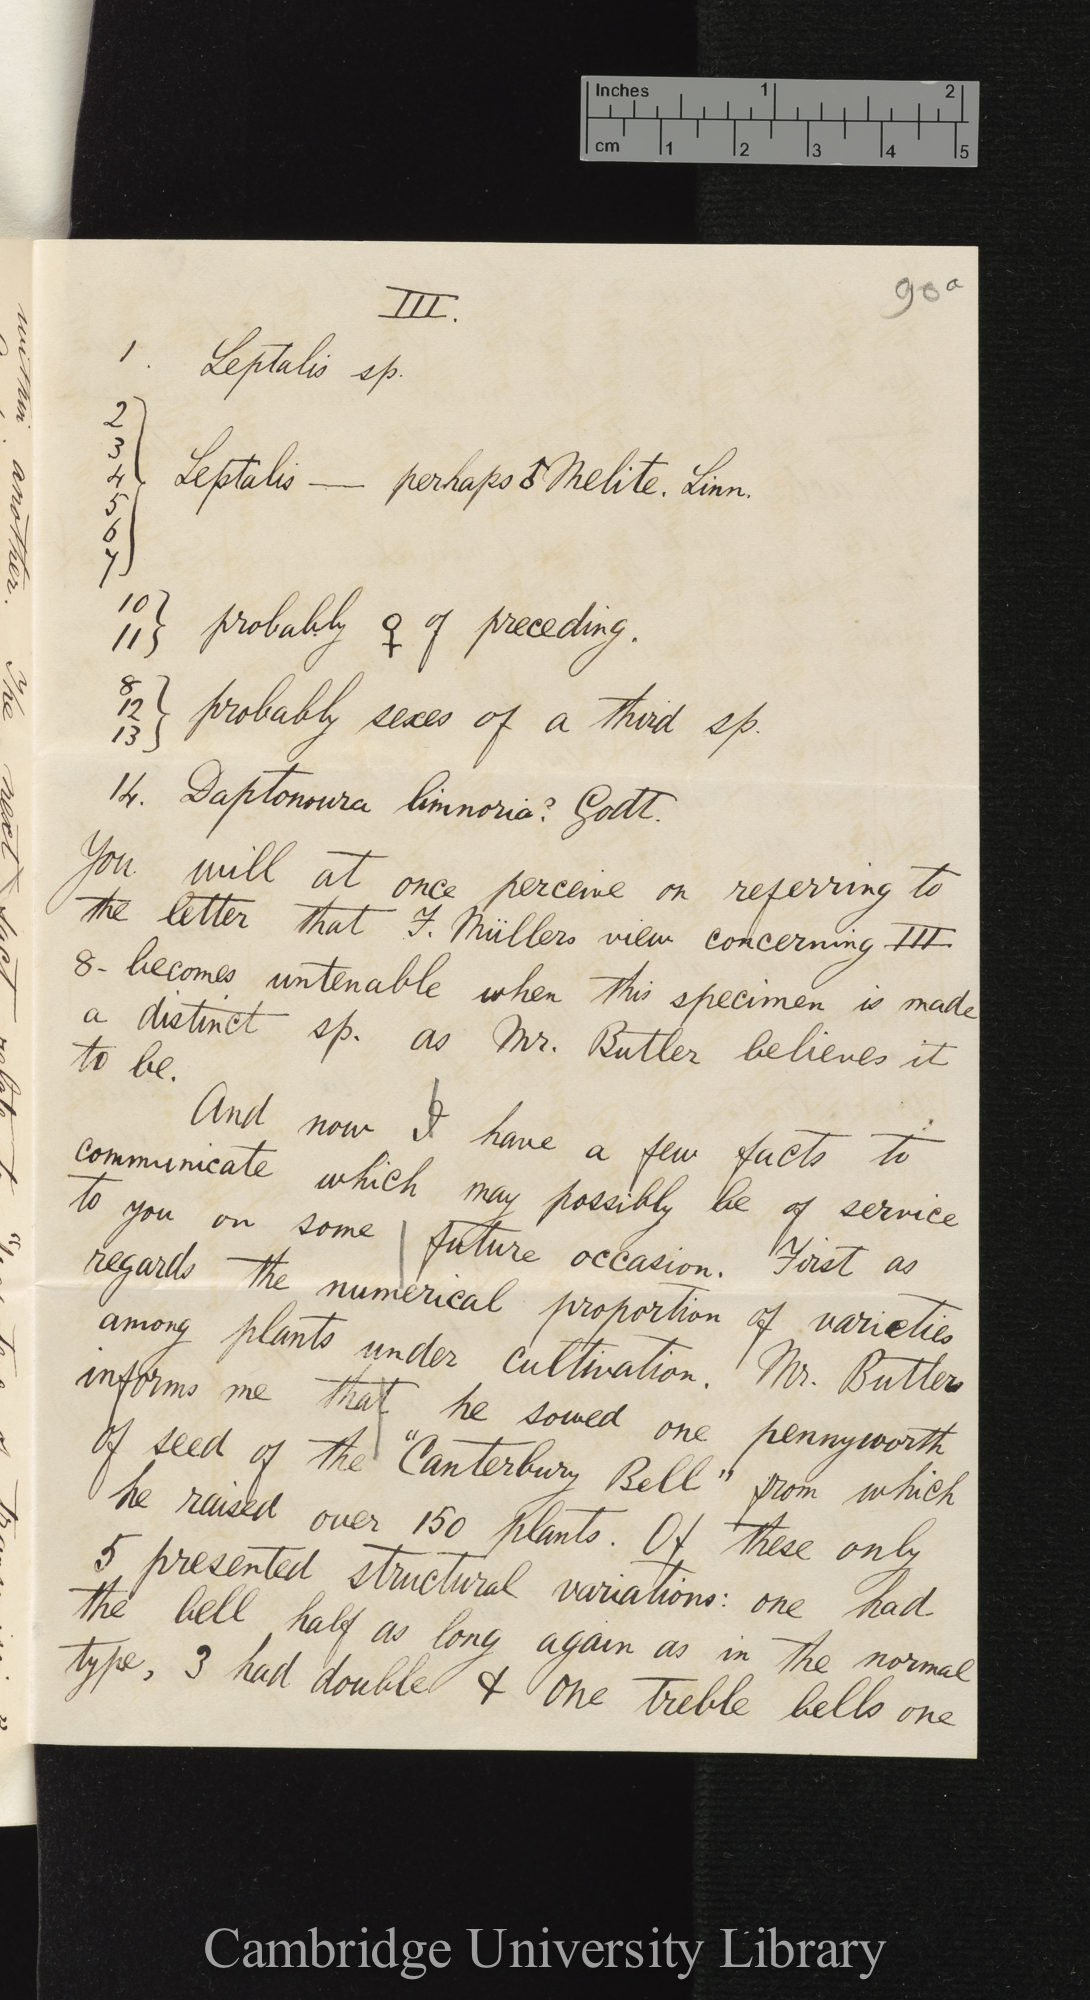 Inches 1 2
cm 1 2 3 4 5
90a
III.
1. Leptalis sp.
2
3
4
5
6
7
Leptalis — perhaps ♂ Melite. Linn.
10
11
probably ♀ of preceding.
8
12
13
probably sexes of a third sp.
14. Daptonoura limnoria? Godt.
You will at once perceive on referring to
the letter that F. Müllers view concerning III
8- becomes untenable when this specimen is made
a distinct sp. as Mr. Butler believes it
to be.
And now I have a few facts to
communicate which may possibly be of service
to you on some future occasion. First as
regards the numerical proportion of varieties
among plants under cultivation. Mr. Butler
informs me that he sowed one pennyworth
of seed of the "Canterbury Bell" from which
he raised over 150 plants. Of these only
5 presented structural variations: one had
the bell half as long again as in the normal
type, 3 had double & one treble bells one
within another. The next
Cambridge University Library